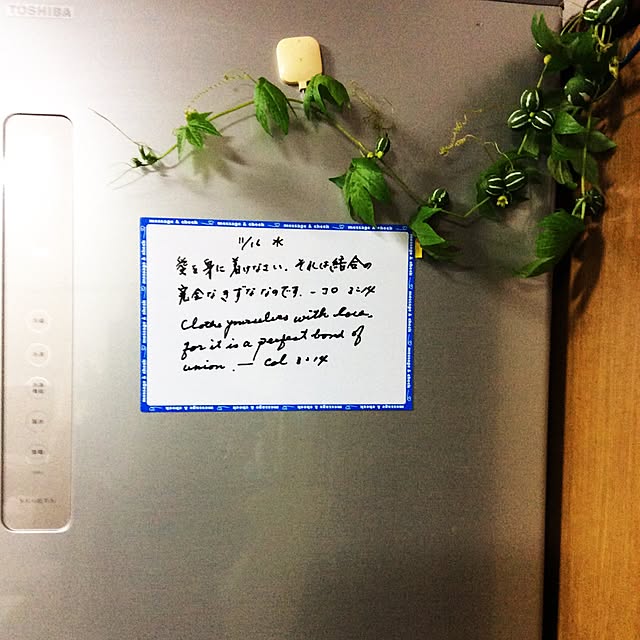 TOSHIBA
message & check message & check message & check
11/16 水
愛を身に着けなさい。それは結合の
完全なきずななのです。－コロ 3:14
Clothe yourselves with love,
for it is a perfect bond of
union. — Col 3:14
message & check message & check message & check